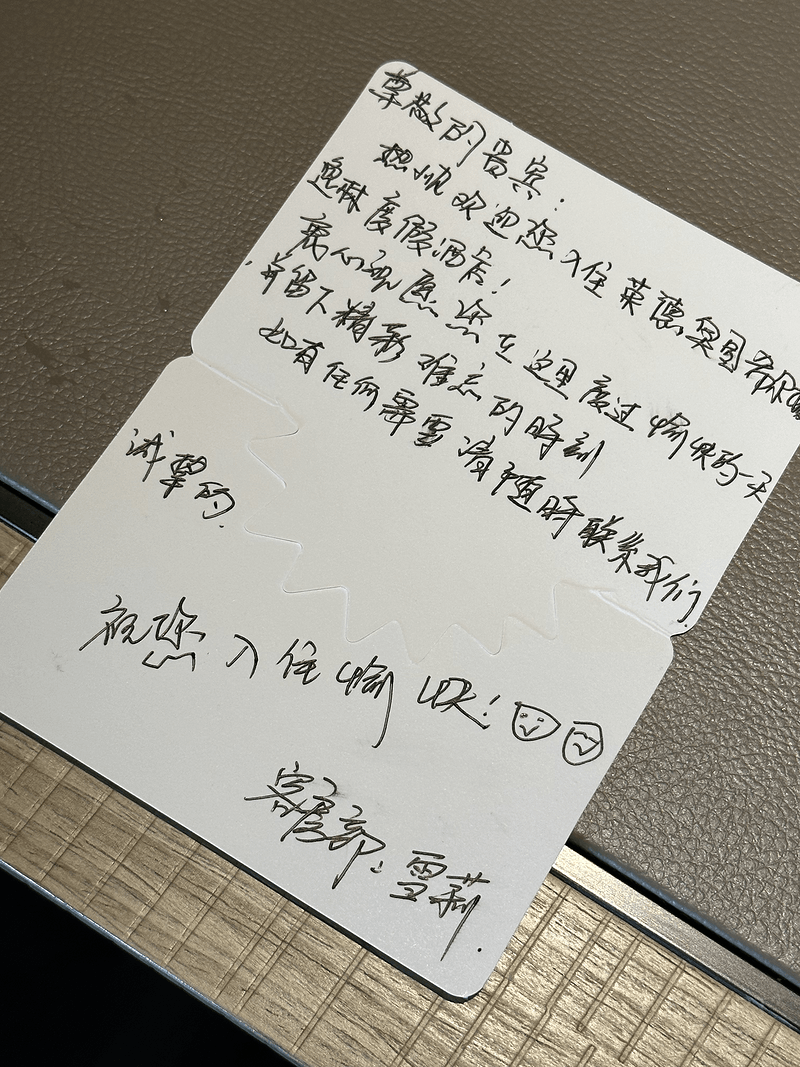 尊敬的贵宾：
热忱欢迎您入住英德奥园希尔顿
逸林度假酒店！
衷心祝愿您在这里度过愉快的一天
并留下精彩难忘的时刻
如有任何需要请随时联系我们
诚挚的
祝您入住愉快！
客房部：雪莉.